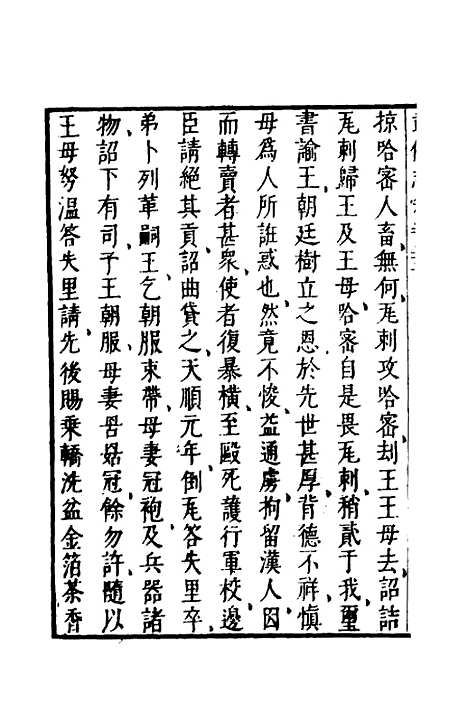 掠哈密人畜無何瓦剌攻哈密刦王王母去詔詰
瓦剌歸王及王母哈密自是畏瓦剌稍貳于我璽
書諭王朝廷樹立之恩於先世甚厚背德不祥慎
毋爲人所誑惑也然竟不悛益通虜拘留漢人因
而轉賣者甚衆使者復暴橫至毆死護行軍校邊
臣請絕其貢詔曲貸之天順元年倒瓦答失里卒
弟卜列革嗣王乞朝服束帶母妻冠袍及兵器諸
物詔下有司予王朝服母妻罟姑冠餘勿許隨以
王母努溫答失里請先後賜乘轎洗盆金箔茶香